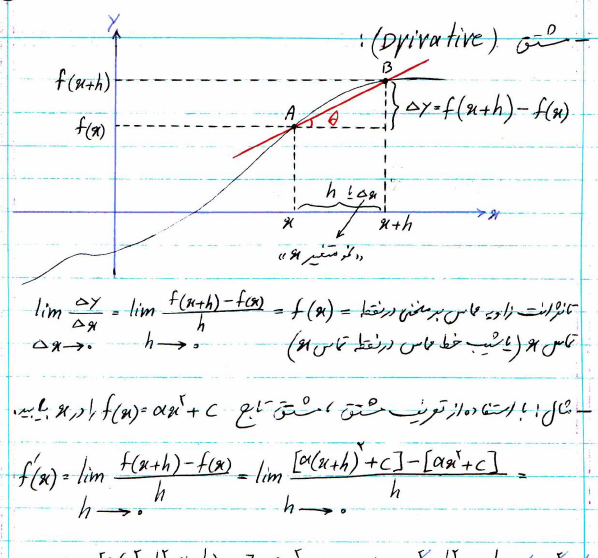 - مشتق (Drivative):
Y
f(x+h)
B
ΔY = f(x+h) - f(x)
A
θ
f(x)
h یا Δx
x
x+h
x
«نمو متغیر x»
lim ΔY/Δx = lim f(x+h)-f(x)/h = f(x) = تانژانت زاویه مماس بر منحنی در نقطه
Δx→۰ h→۰ تماس x (یا شیب خط مماس در نقطه تماس x)
- مثال: با استفاده از تعریف مشتق، مشتق تابع f(x)=ax²+c را در x بیابید.
f'(x) = lim f(x+h)-f(x)/h = lim [a(x+h)²+c]-[ax²+c]/h =
h→۰ h→۰